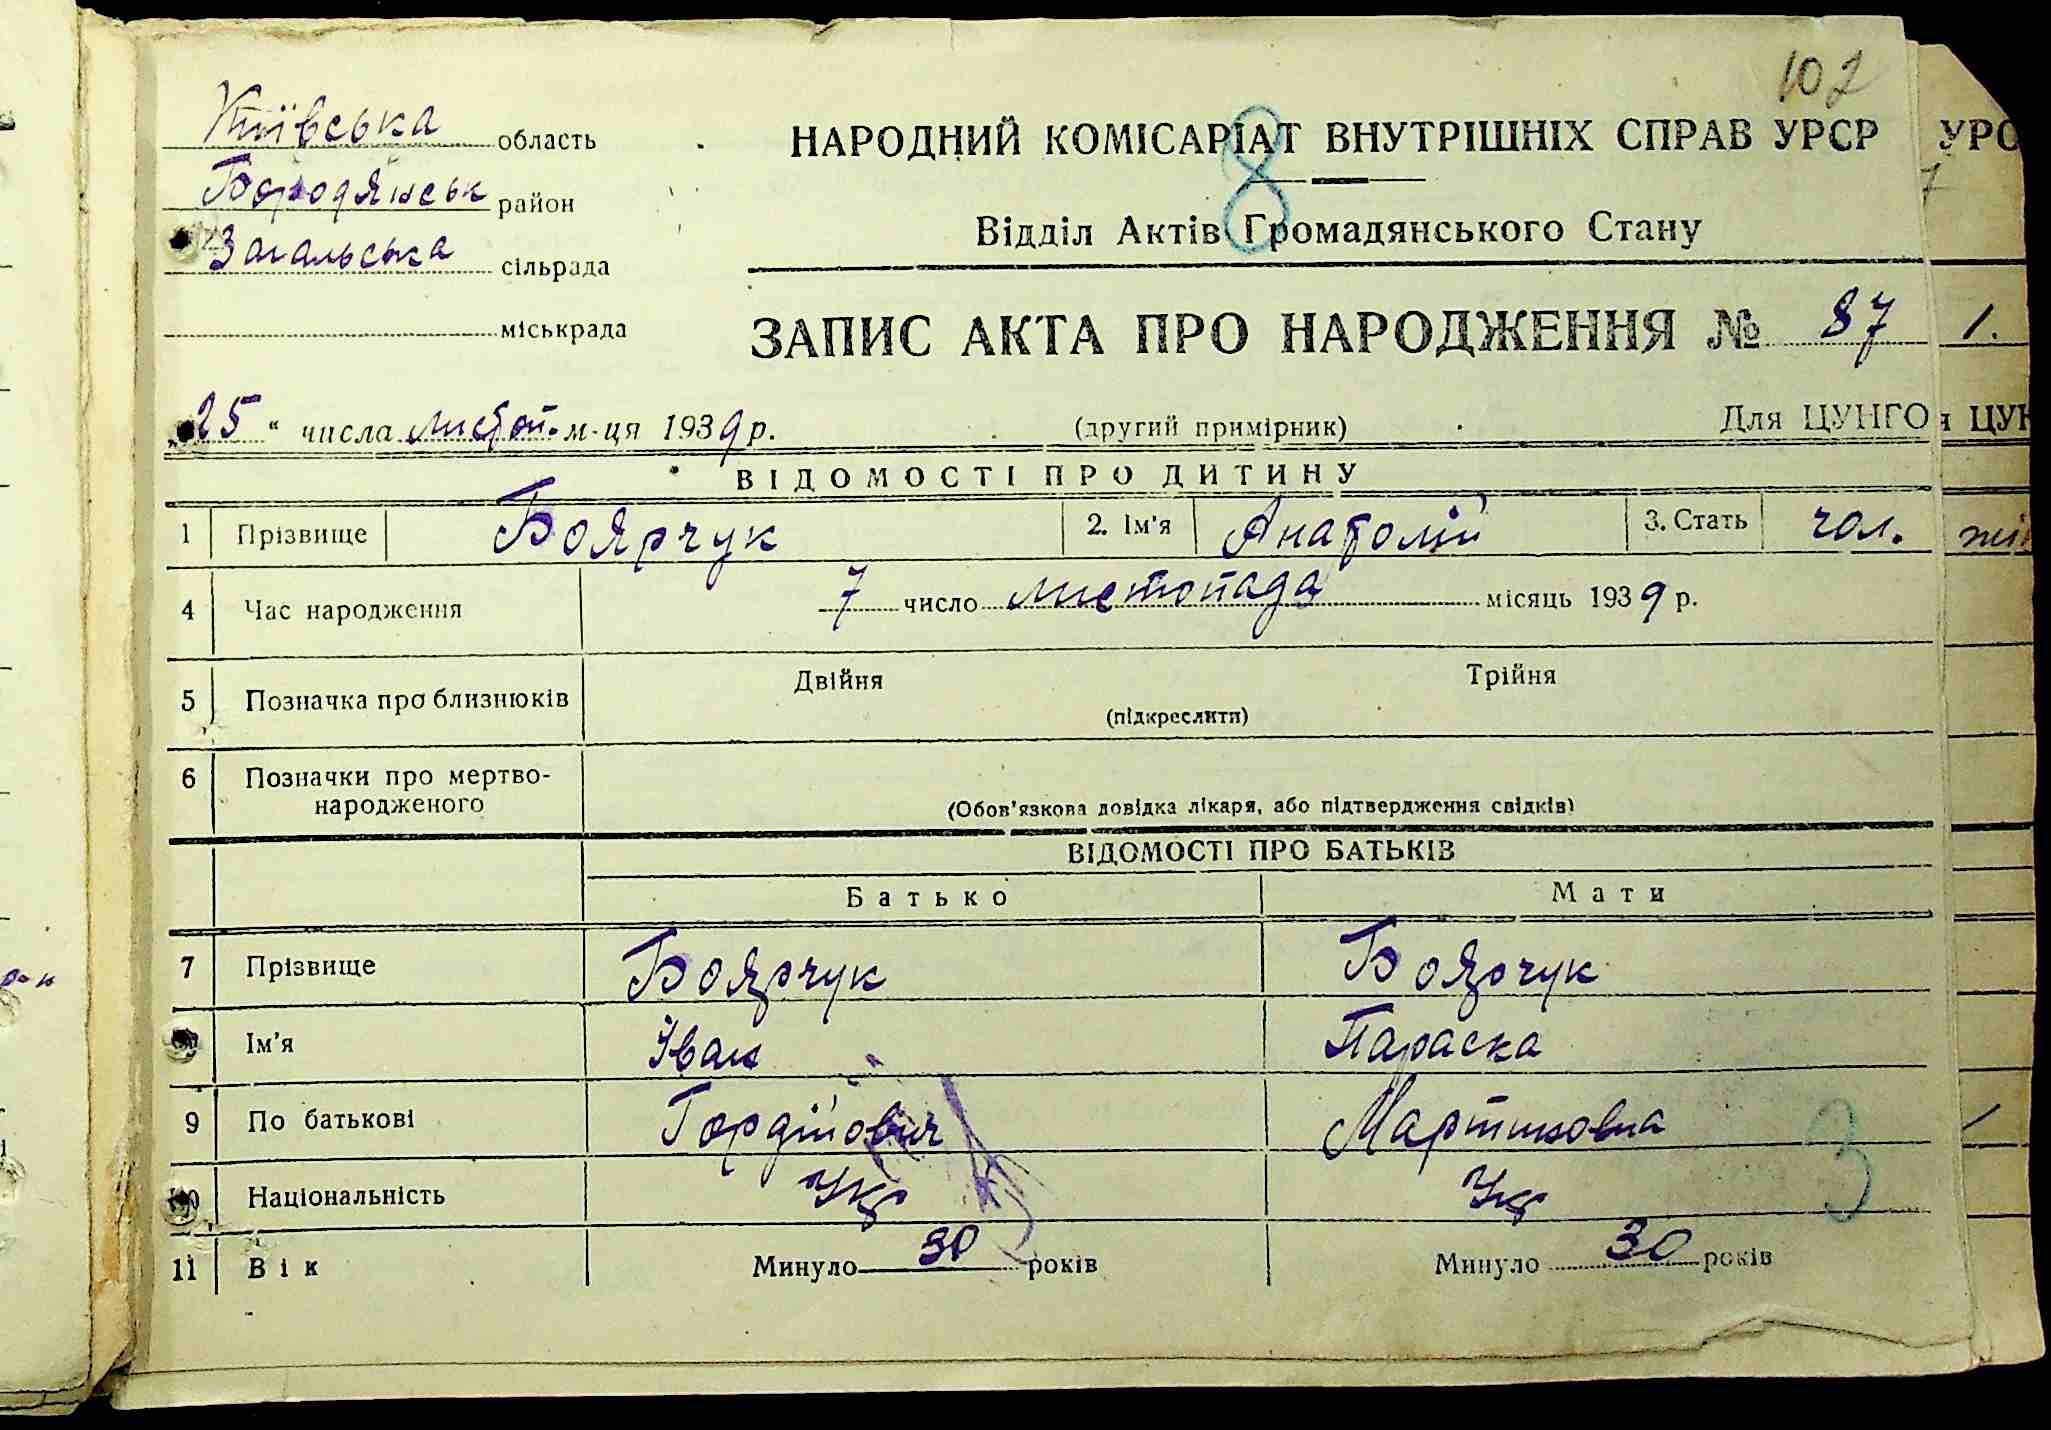 102
Київська область
Бородянськ район
Загальська сільрада
міськрада
НАРОДНИЙ КОМІСАРІАТ ВНУТРІШНІХ СПРАВ УРСР
8
Відділ Актів Громадянського Стану
ЗАПИС АКТА ПРО НАРОДЖЕННЯ № 87
„25“ числа листоп. м-ця 1939 р.
(другий примірник)
Для ЦУНГО
ВІДОМОСТІ ПРО ДИТИНУ
1 Прізвище Боярчук 2. Ім'я Анатолій 3. Стать чол.
4 Час народження 7 число листопада місяць 1939 р.
5 Позначка про близнюків Двійня Трійня
(підкреслити)
6 Позначки про мертво-
народженого
(Обов'язкова довідка лікаря, або підтвердження свідків)
ВІДОМОСТІ ПРО БАТЬКІВ
Батько Мати
7 Прізвище Боярчук Боярчук
Ім'я Іван Параска
9 По батькові Гордійович Мартиновна
10 Національність Укр Укр
3
11 Вік Минуло 30 років Минуло 30 років